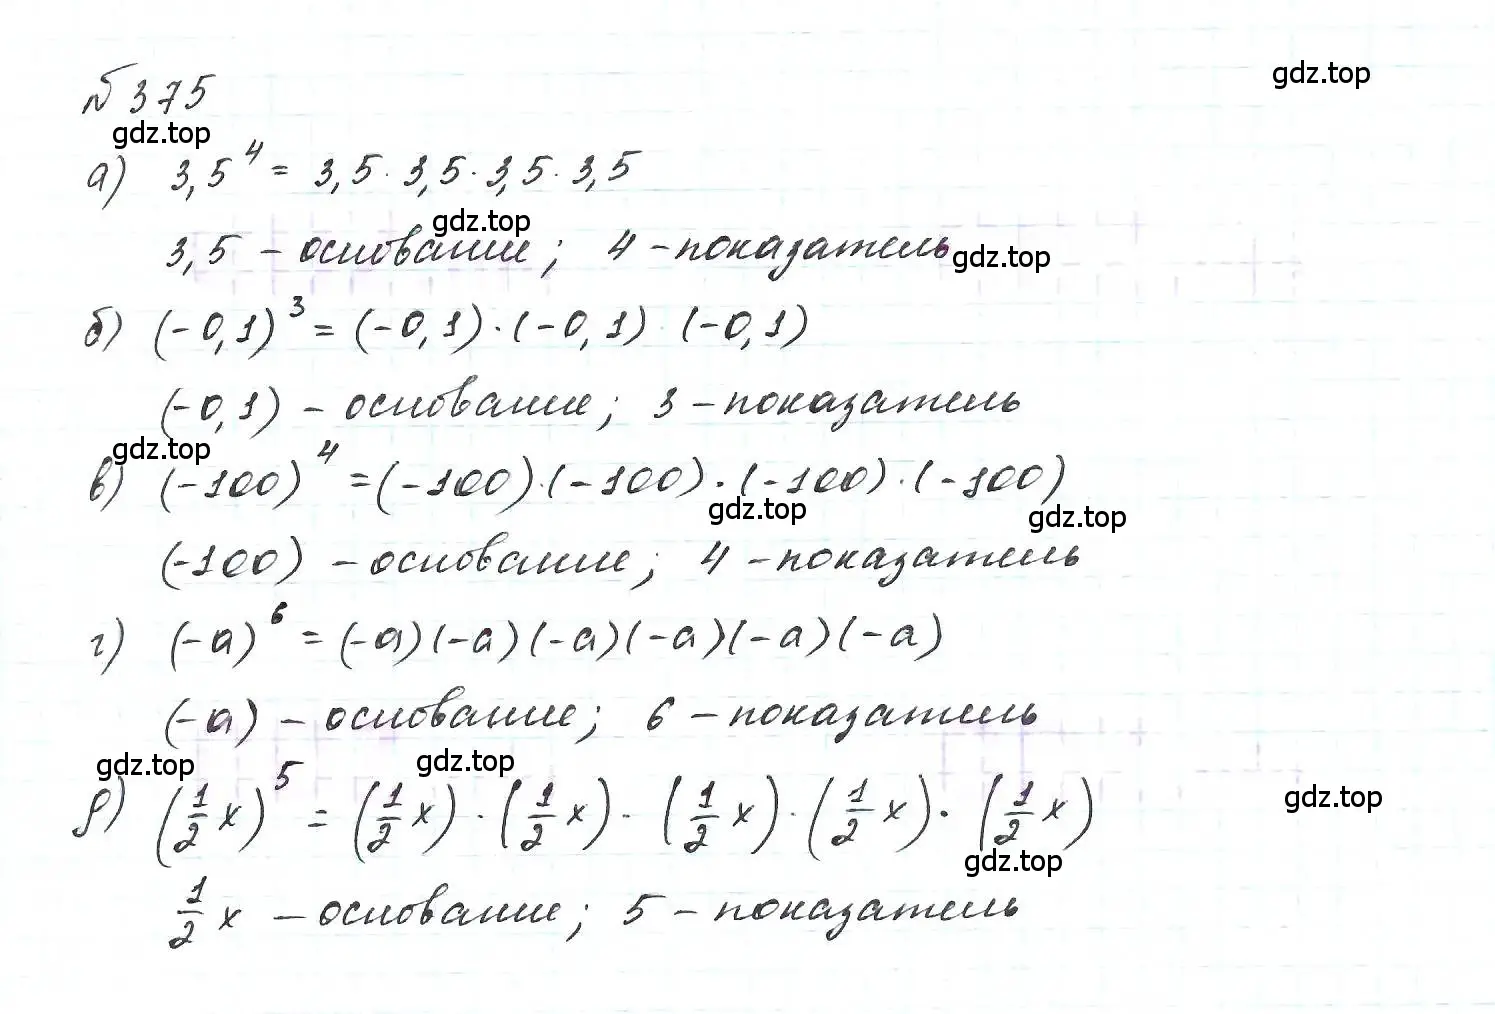 № 375
gdz.top
gdz.top
а) 3,5⁴ = 3,5 · 3,5 · 3,5 · 3,5
gdz.top
3,5 – основание; 4 – показатель
gdz.top
б) (-0,1)³ = (-0,1) · (-0,1) (-0,1)
(-0,1) – основание; 3 – показатель
gdz.top
в) (-100)⁴ = (-100) · (-100) · (-100) · (-100)
gdz.top
gdz.top
(-100) – основание; 4 – показатель
г) (-a)⁶ = (-a)(-a)(-a)(-a)(-a)(-a)
(-a) – основание; 6 – показатель
gdz.top
gdz.top
д) (1/2 x)⁵ = (1/2 x) · (1/2 x) · (1/2 x) · (1/2 x) · (1/2 x)
gdz.top
gdz.top
1/2 x – основание; 5 – показатель